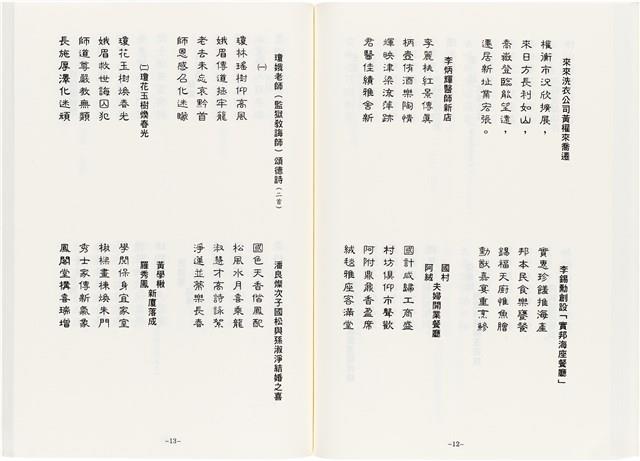 來來洗衣公司黃權來喬遷
權衡市況欣擴展，
來日方長利如山，
喬嶽登臨能望遠，
遷居新址業宏張。
李炳輝醫師新店
李麗桃紅景傳真
炳壺侑酒樂陶情
輝映津梁流萍跡
君醫佳績雅舍新
李錫勳創設「實邦海座餐廳」
實惠珍饈推海產
邦本民食樂饔餐
錫福天廚惟魚膾
勳猷嘉宴重烹鯵
國村 阿絨 夫婦開業餐廳
國計咸歸工商盛
村坊俱仰市聲歡
阿附鼎鼐香盈席
絨毯雅座客滿堂
-12-
瓊娥老師（監獄教誨師）頌德詩（二首）
㈠
瓊林瑤樹仰高風
娥眉傳道拯牢籠
老去未忘哀黔首
師恩感召化迷矇
㈡瓊花玉樹煥春光
瓊花玉樹煥春光
娥眉救世誨囚犯
師道尊嚴教無類
長施厚澤化迷頑
潘良燦次子國松與孫淑淨結婚之喜
國色天香偕鳳配
松風水月喜乘龍
淑慧才高詩詠絮
淨蓮並蒂樂長春
黃學楸 羅秀鳳 新廈落成
學問保身宜家室
楸樑畫棟煥朱門
秀士家傳新氣象
鳳閣堂構喜瑞增
-13-